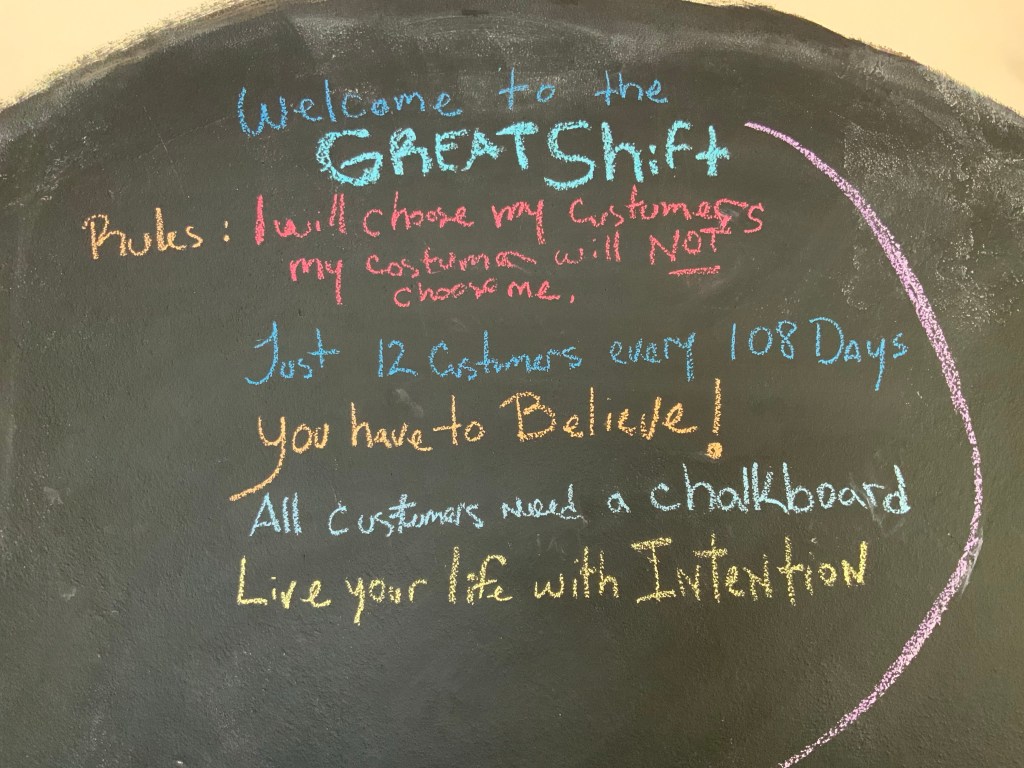 Welcome to the
GREAT Shift
Rules: I will choose my Custumers
my costumer will NOT
choose me.
Just 12 Custumers every 108 Days
you have to Believe!
All customers need a chalkboard
Live your life with INTENTION